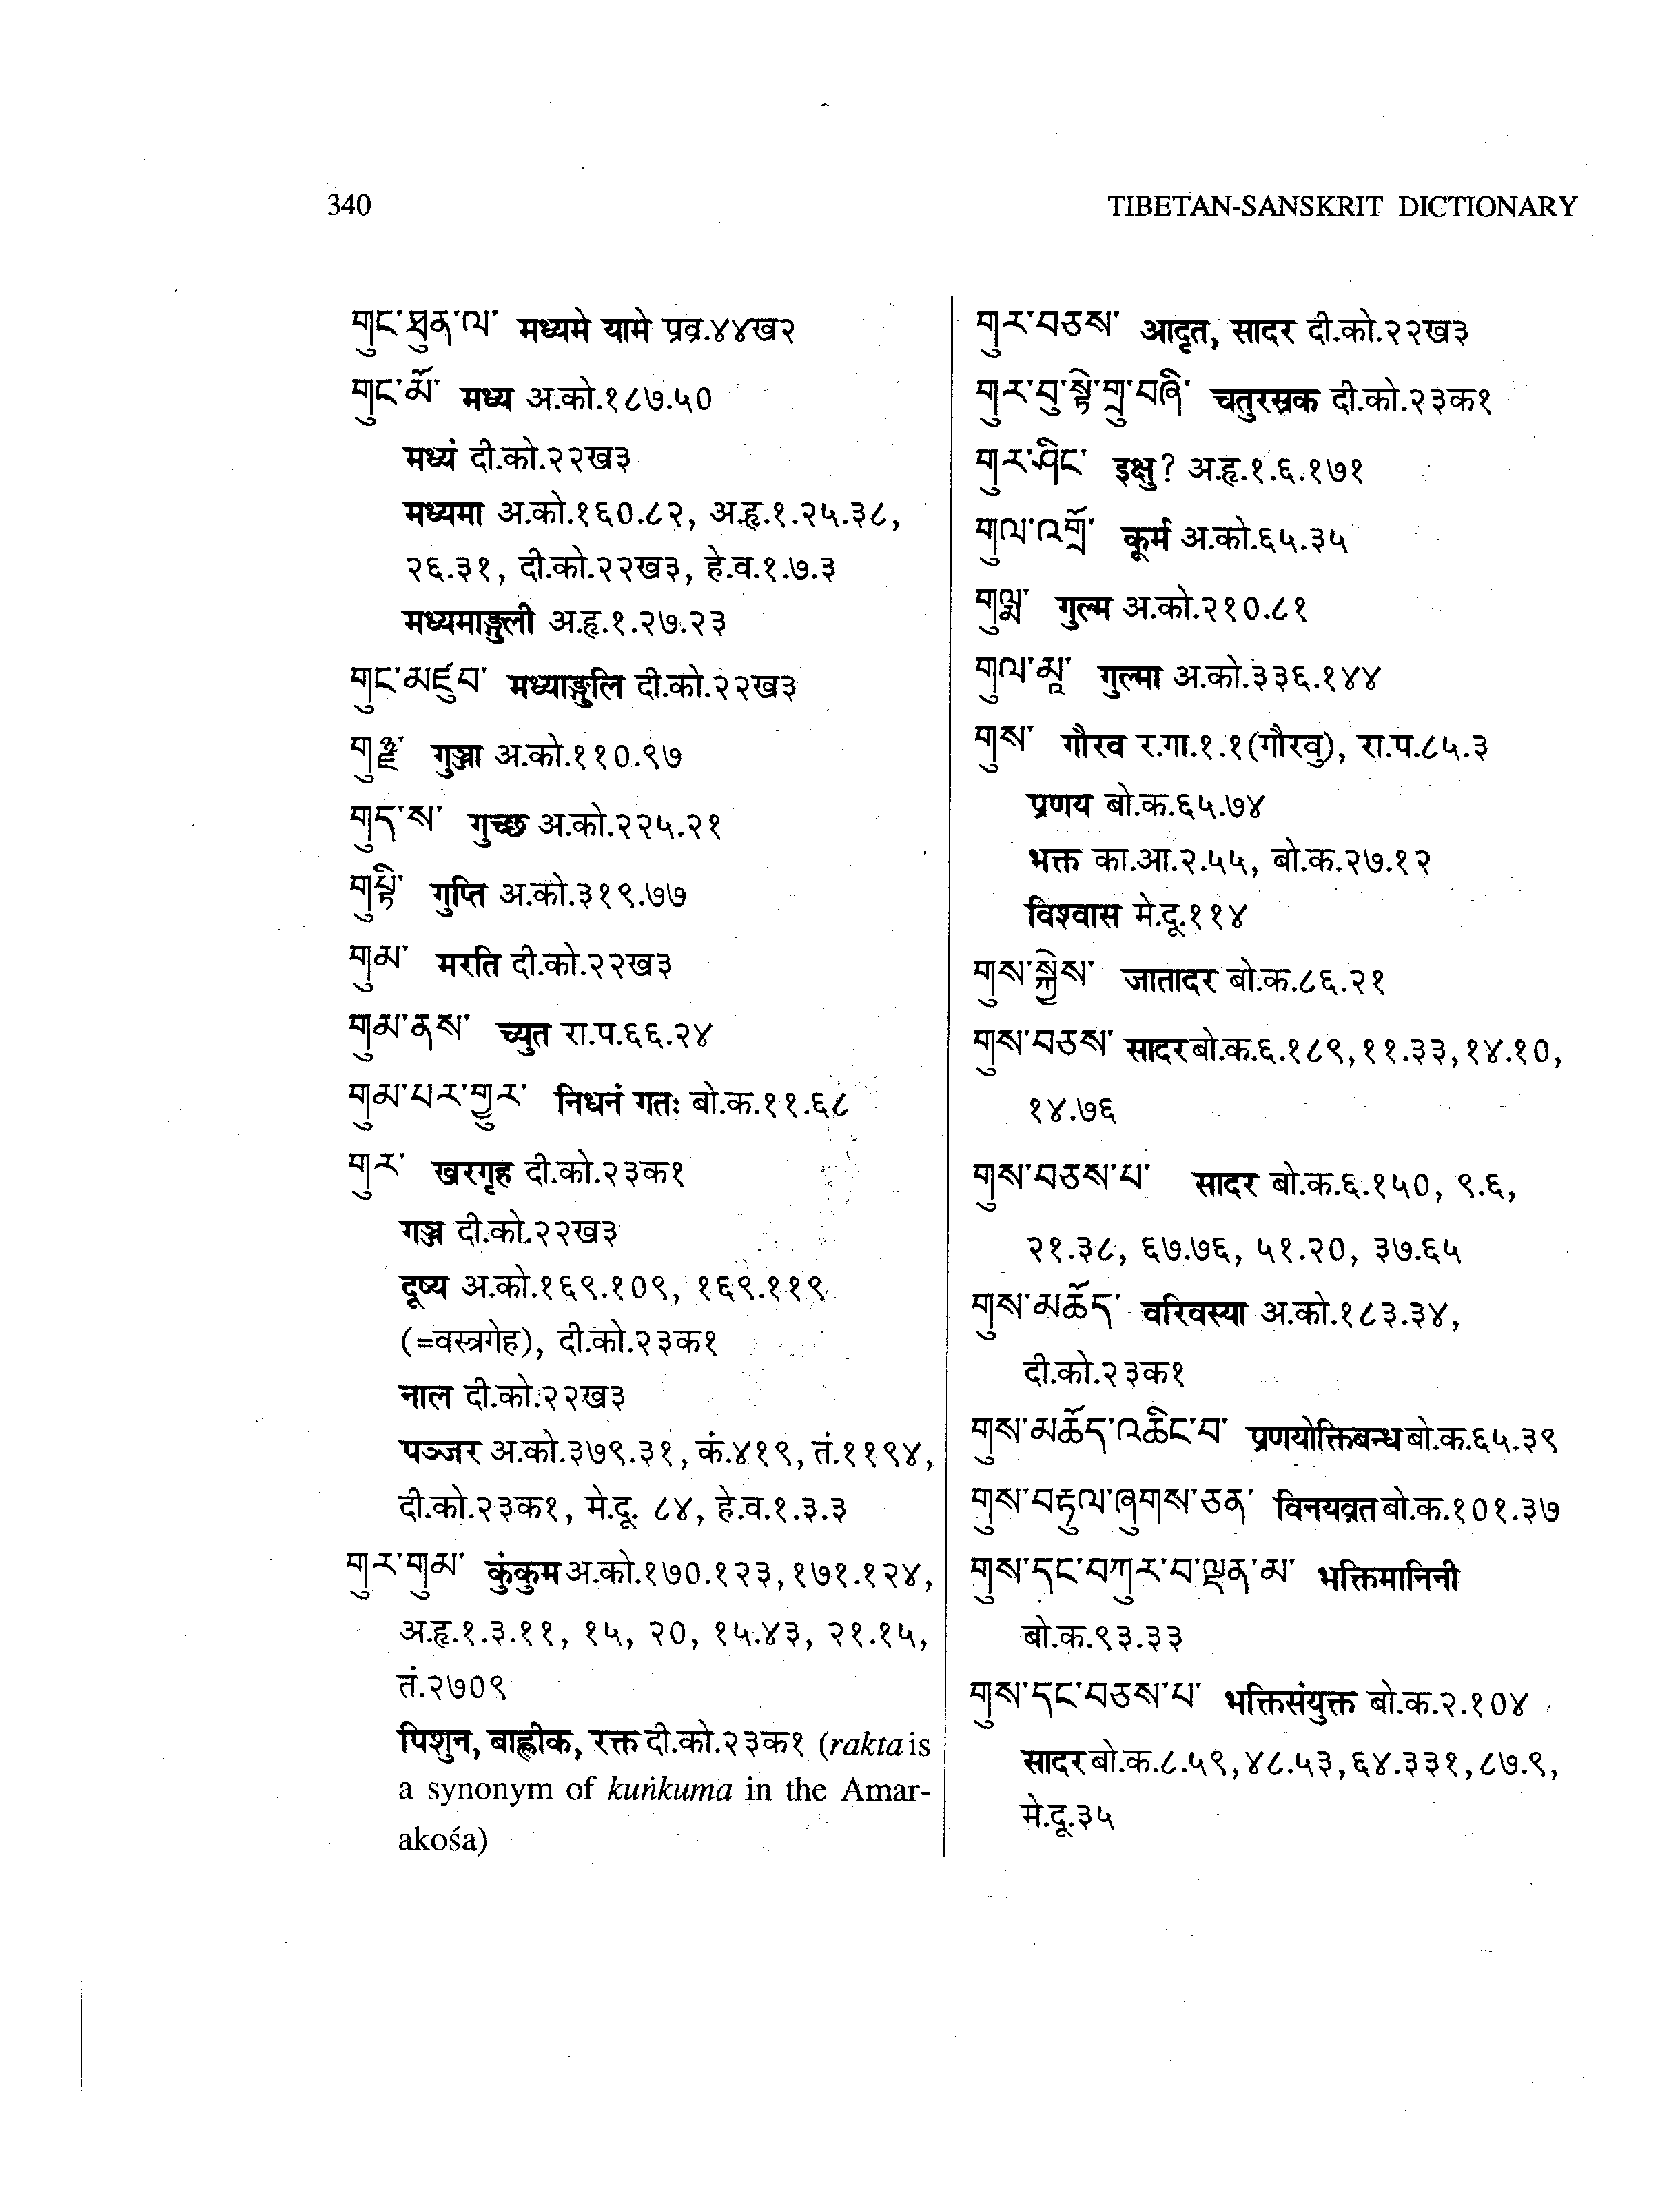 340
TIBETAN-SANSKRIT DICTIONARY
གུང་ཐུན་ལ་ मध्यमे यामे प्रव्र.४४ख२
གུང་མོ་ मध्य अ.को.१८७.५०
मध्यं दी.को.२२ख३
मध्यमा अ.को.१६०.८२, अ.हृ.१.२५.३८,
२६.३१, दी.को.२२ख३, हे.व.१.७.३
मध्यमाङ्गुली अ.हृ.१.२७.२३
གུང་མཛུབ་ मध्याङ्गुलि दी.को.२२ख३
གུཉྫ་ गुञ्जा अ.को.११०.९७
གུད་ས་ गुच्छ अ.को.२२५.२१
གུཔྟི་ गुप्ति अ.को.३१९.७७
གུམ་ मरति दी.को.२२ख३
གུམ་ནས་ च्युत रा.प.६६.२४
གུམ་པར་གྱུར་ निधनं गतः बो.क.११.६८
གུར་ खरगृह दी.को.२३क१
गञ्ज दी.को.२२ख३
दूष्य अ.को.१६९.१०९, १६९.११९
(=वस्त्रगेह), दी.को.२३क१
नाल दी.को.२२ख३
पञ्जर अ.को.३७९.३१, कं.४१९, तं.११९४,
दी.को.२३क१, मे.दू. ८४, हे.व.१.३.३
གུར་གུམ་ कुंकुम अ.को.१७०.१२३, १७१.१२४,
अ.हृ.१.३.११, १५, २०, १५.४३, २१.१५,
तं.२७०९
पिशुन, बाह्लीक, रक्त दी.को.२३क१ (rakta is
a synonym of kuṅkuma in the Amar-
akośa)
གུར་བཅས་ आदृत, सादर दी.को.२२ख३
གུར་བུ་སྟེ་གྲུ་བཞི་ चतुरस्रक दी.को.२३क१
གུར་ཤིང་ इक्षु? अ.हृ.१.६.१७१
གུལ་འགྲོ་ कूर्म अ.को.६५.३५
གུལྨ་ गुल्म अ.को.२१०.८१
གུལ་མཱ་ गुल्मा अ.को.३३६.१४४
གུས་ गौरव र.गा.१.१(गौरवु), रा.प.८५.३
प्रणय बो.क.६५.७४
भक्त का.आ.२.५५, बो.क.२७.१२
विश्वास मे.दू.११४
གུས་སྐྱེས་ जातादर बो.क.८६.२१
གུས་བཅས་ सादर बो.क.६.१८९, ११.३३, १४.१०,
१४.७६
གུས་བཅས་པ་ सादर बो.क.६.१५०, ९.६,
२१.३८, ६७.७६, ५१.२०, ३७.६५
གུས་མཆོད་ वरिवस्या अ.को.१८३.३४,
दी.को.२३क१
གུས་མཆོད་འཆིང་བ་ प्रणयोक्तिबन्ध बो.क.६५.३९
གུས་བརྟུལ་ཞུགས་ཅན་ विनयव्रत बो.क.१०१.३७
གུས་དང་བཀུར་བ་ལྡན་མ་ भक्तिमानिनी
बो.क.९३.३३
གུས་དང་བཅས་པ་ भक्तिसंयुक्त बो.क.२.१०४
सादर बो.क.८.५९, ४८.५३, ६४.३३१, ८७.९,
मे.दू.३५